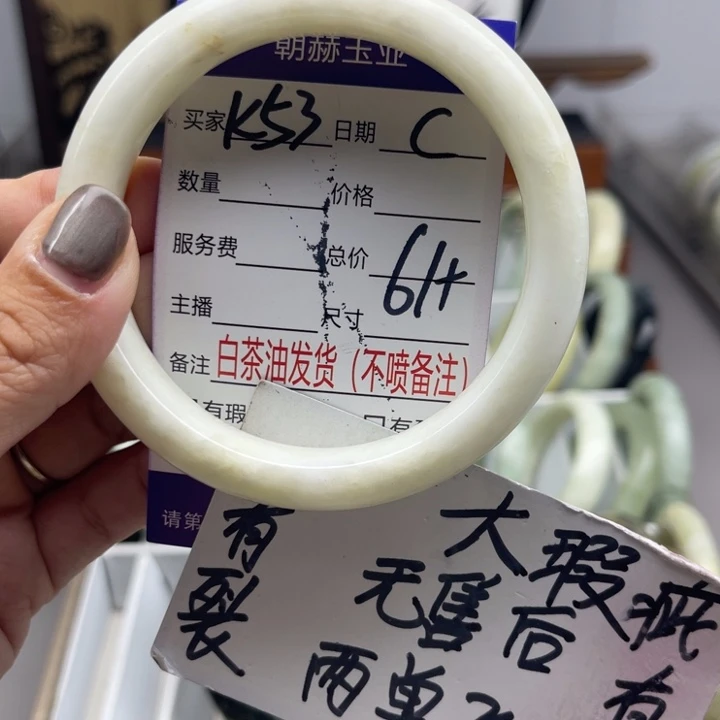 朝赫玉业
买家 K53 日期 C
数量 价格
服务费 总价 61+
主播 尺寸
备注 白茶油发货（不喷备注）
有瑕
只有
请第
有裂
大瑕疵
无售后
两单
有